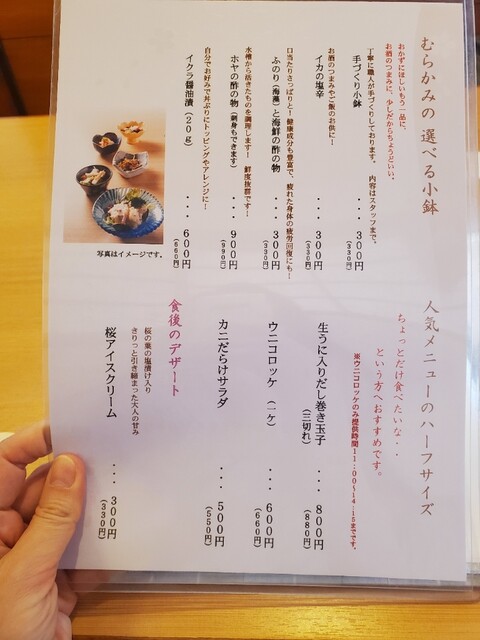 むらかみの選べる小鉢
おかずにほしいもう一品に、
お酒のつまみに、少しだからちょうどいい。
手づくり小鉢 ・・・300円
(330円)
丁寧に職人が手づくりしております。 内容はスタッフまで。
イカの塩辛 ・・・300円
(330円)
お酒のつまみやご飯のお供に!
ふのり(海藻)と海鮮の酢の物 ・・・300円
(330円)
口当たりさっぱりと!健康成分も豊富で、疲れた身体の疲労回復にも!
ホヤの酢の物(刺身もできます) ・・・900円
(990円)
水槽から活きたものを調理します! 鮮度抜群です!
イクラ醤油漬(20g) ・・・600円
(660円)
自分でお好みで丼ぶりにトッピングやアレンジに!
写真はイメージです。
人気メニューのハーフサイズ
ちょっとだけ食べたいな・・
という方へおすすめです。
※ウニコロッケのみ提供時間11:00~14:15までです。
生うに入りだし巻き玉子
(三切れ) ・・・800円
(880円)
ウニコロッケ (一ヶ) ・・・600円
(660円)
カニだらけサラダ ・・・500円
(550円)
食後のデザート
桜の葉の塩漬け入り
きりっと引き締まった大人の甘み
桜アイスクリーム ・・・300円
(330円)